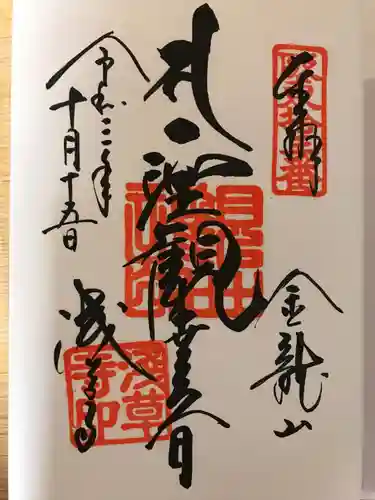 奉拝
金龍山
聖観世音
浅草寺
令和三年
十月十五日
浅草寺印